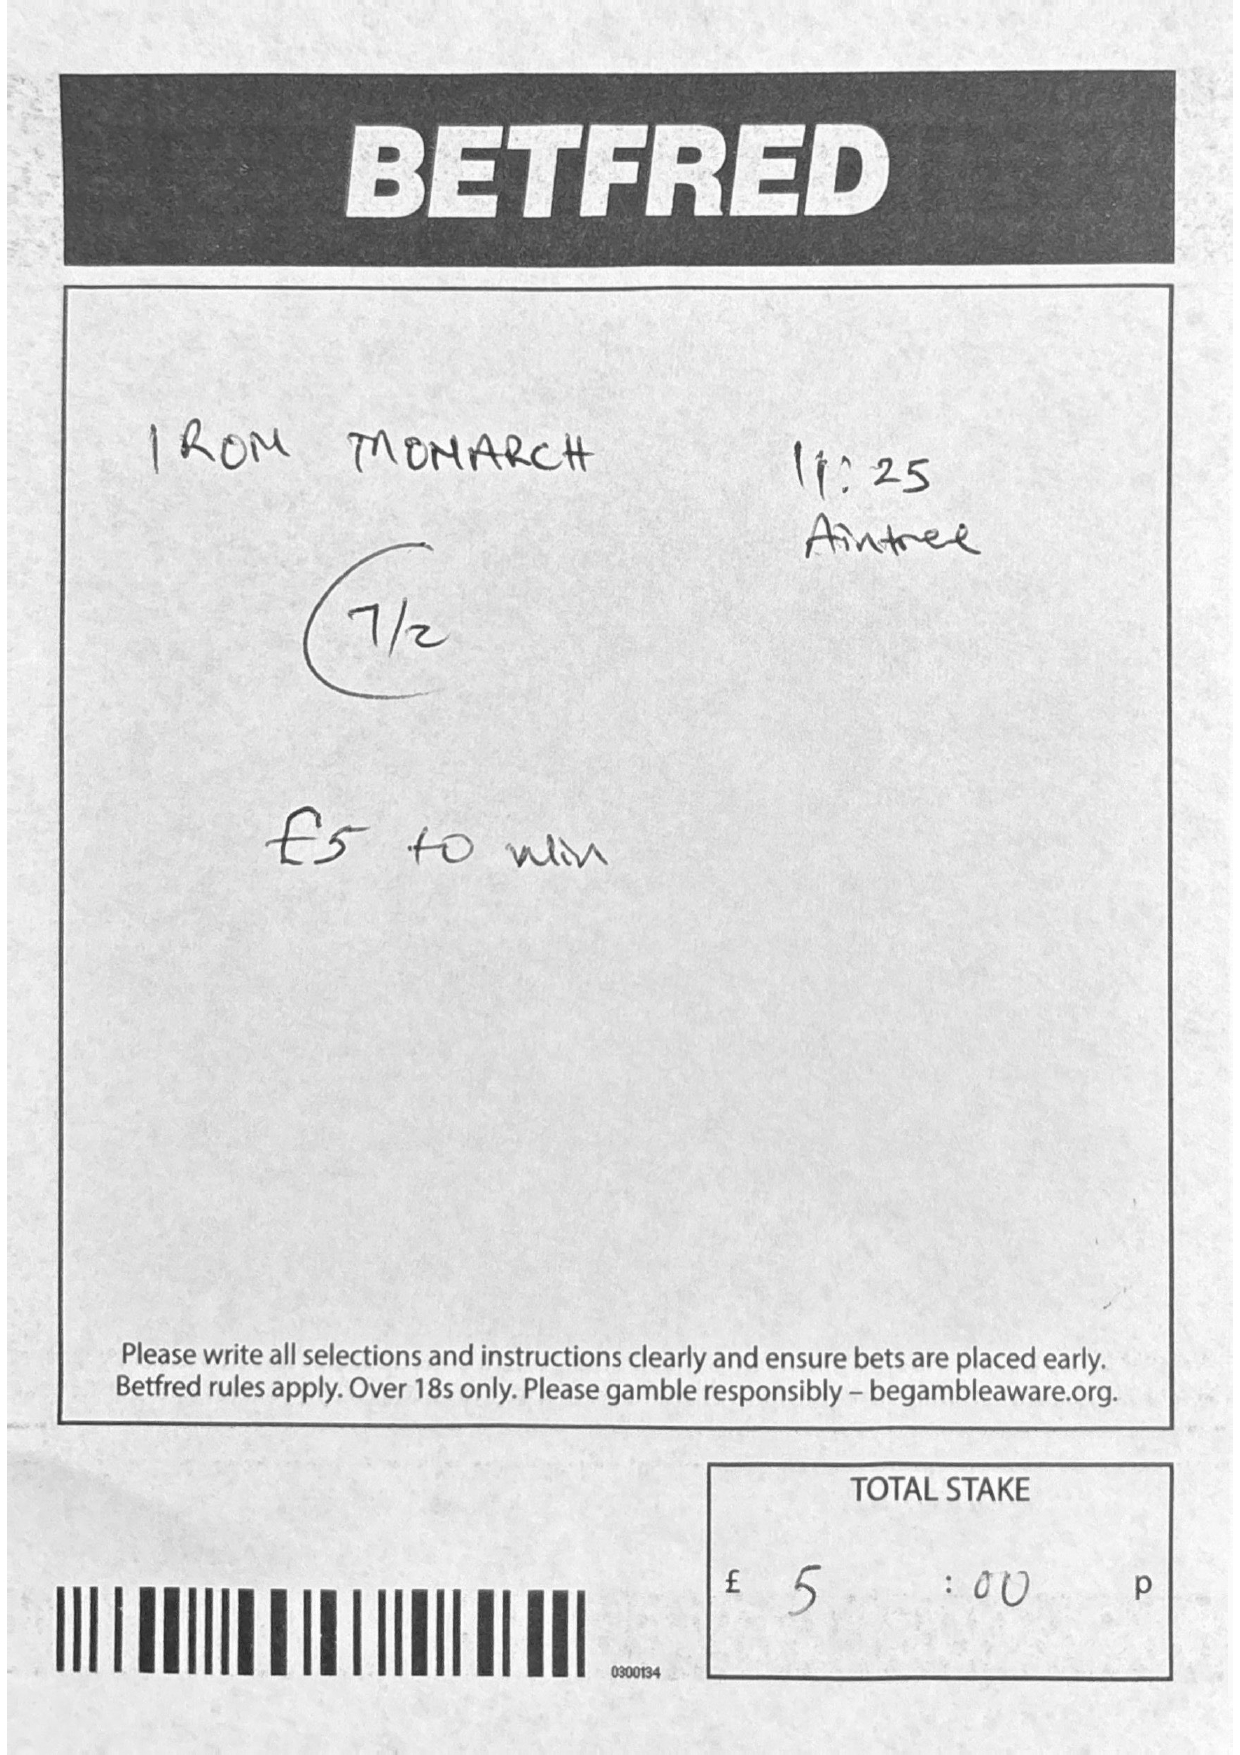 BETFRED
IRON MONARCH
11:25
Aintree
7/2
£5 to win
Please write all selections and instructions clearly and ensure bets are placed early.
Betfred rules apply. Over 18s only. Please gamble responsibly – begambleaware.org.
TOTAL STAKE
£ 5 : 00 p
0300134